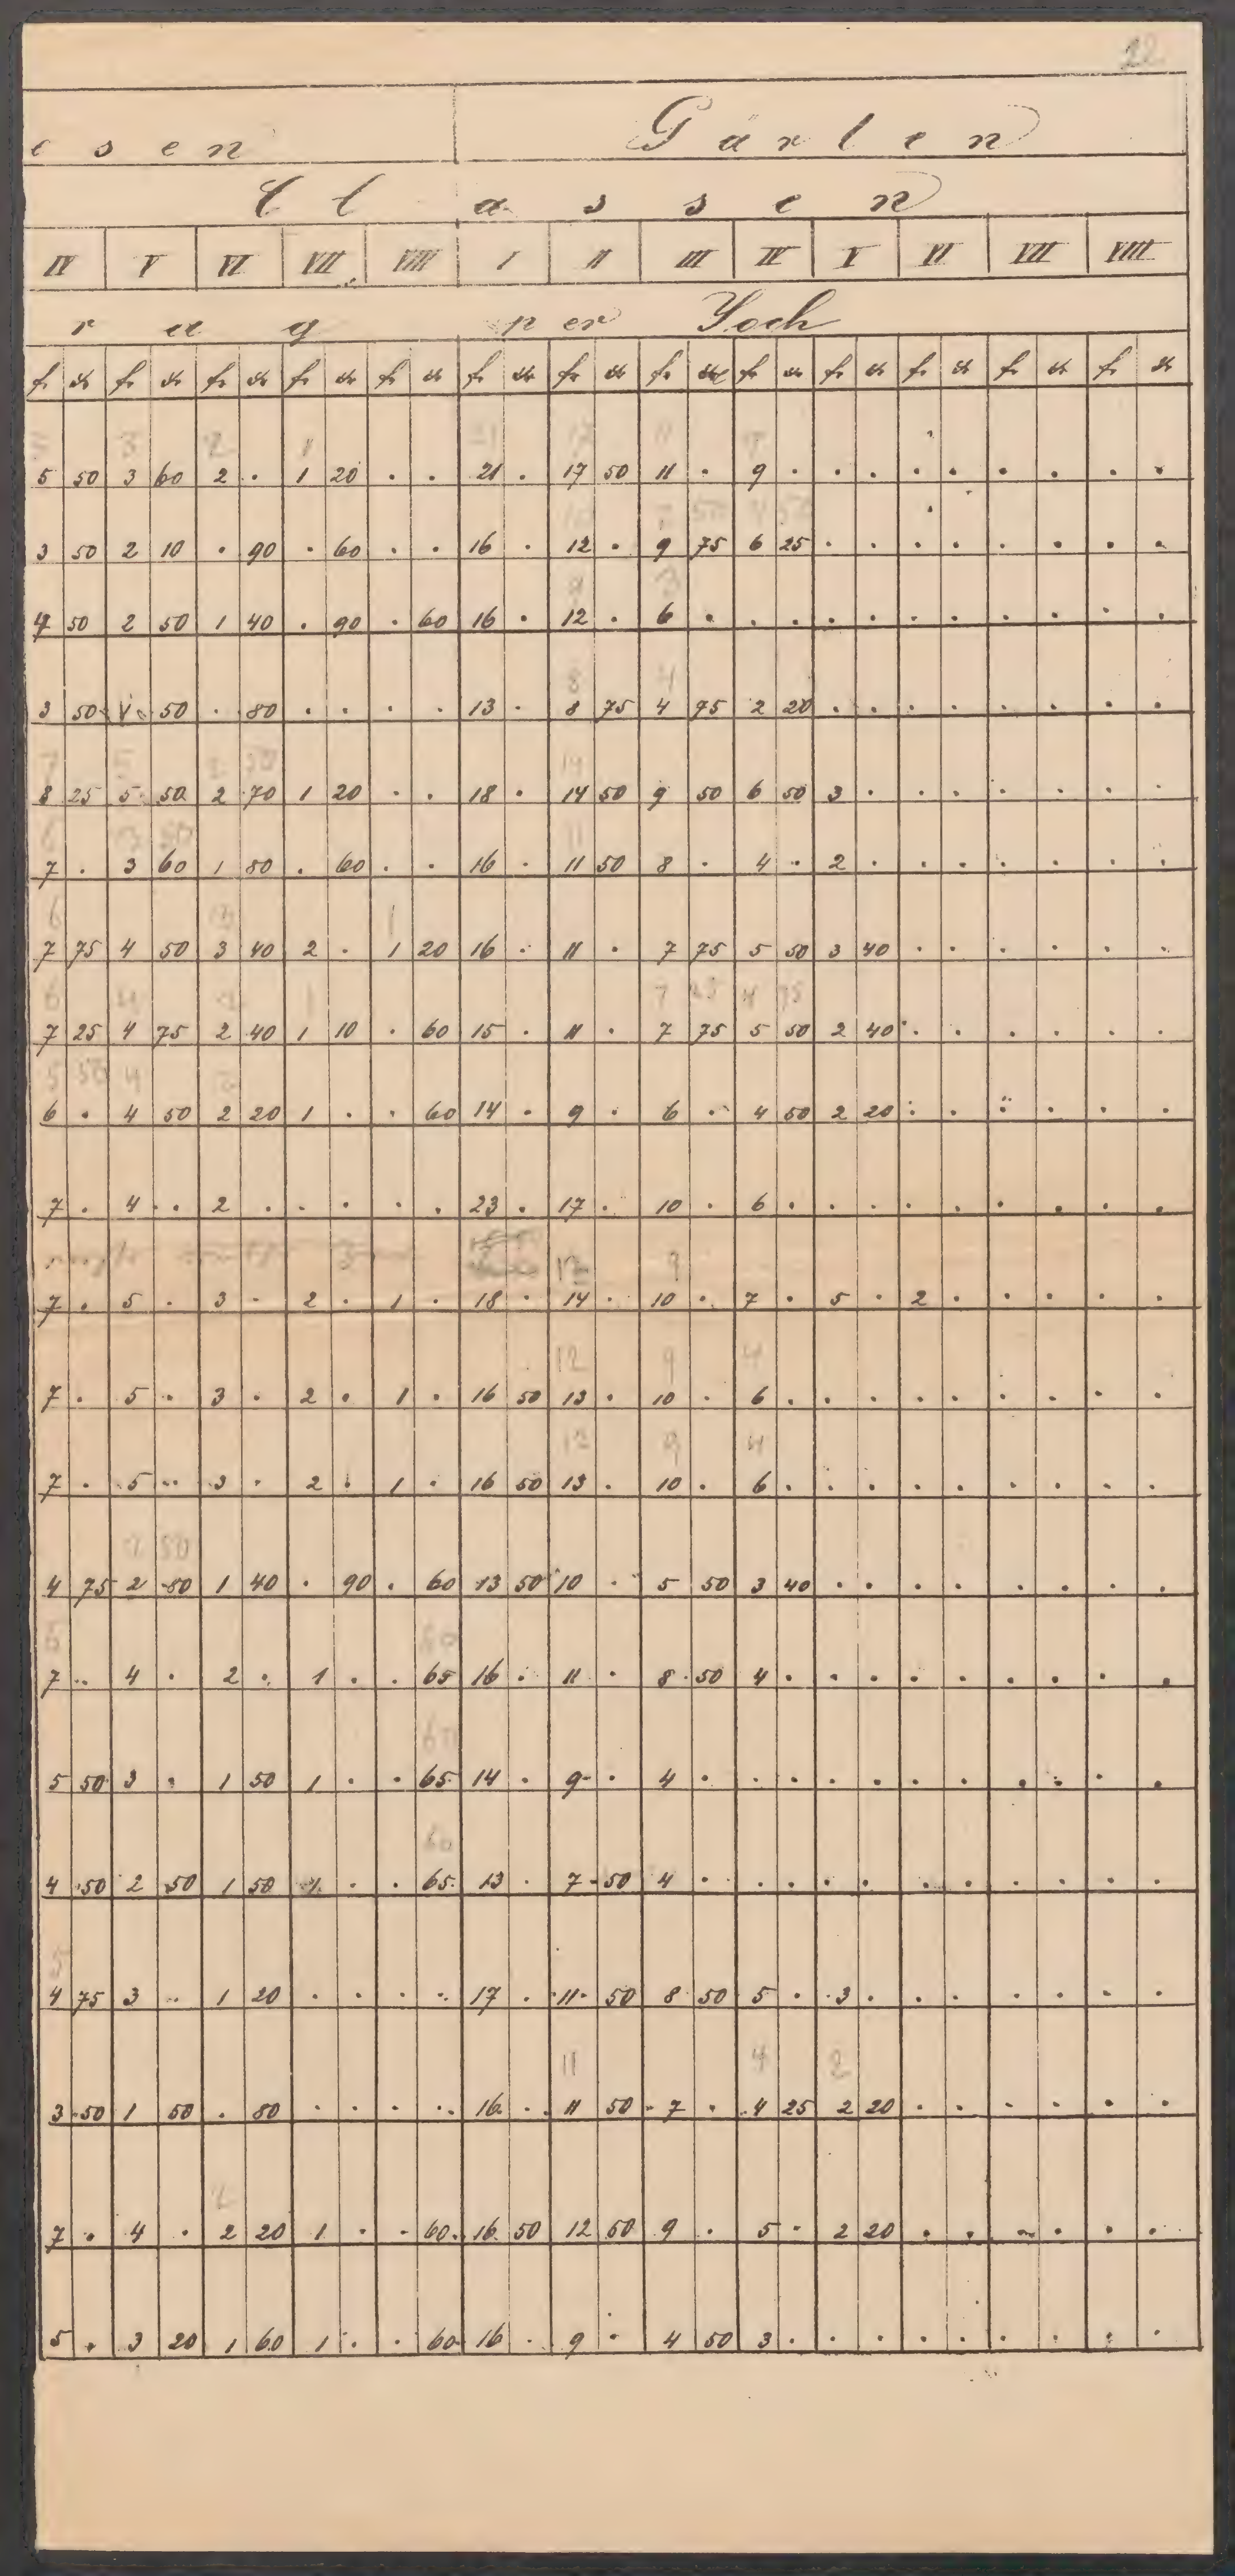 22
esen Gärten
Classen
IV V VI VII VIII I II III IV V VI VII VIII
rag per Joch
fr kr fr kr fr kr fr kr fr kr fr kr fr kr fr kr fr kr fr kr fr kr fr kr fr kr
3 2 1 21 17 11
5 50 3 60 2 . 1 20 . . 21 . 17 50 11 . 9 . . . . . . . . .
10 7 50 4 50
3 50 2 10 . 90 . 60 . . 16 . 12 . 9 75 6 25 . . . . . . . .
9 3
4 50 2 50 1 40 . 90 . 60 16 . 12 . 6 . . . . . . . . . . .
8 4
3 50 1 50 . 80 . . . . 13 . 8 75 4 75 2 20 . . . . . . . .
7 5 2 50 14
8 25 5 50 2 70 1 20 . . 18 . 14 50 9 50 6 50 3 . . . . . . .
6 3 50 11
7 . 3 60 1 80 . 60 . . 16 . 11 50 8 . 4 . 2 . . . . . . .
6 1
7 75 4 50 3 40 2 . 1 20 16 . 11 . 7 75 5 50 3 40 . . . . . .
6 4 2 1 7 25 4 75
7 25 4 75 2 40 1 10 . 60 15 . 11 . 7 75 5 50 2 40 . . . . . .
5 50 4 2
6 . 4 50 2 20 1 . . 60 14 . 9 . 6 . 4 50 2 20 . . . . . .
7 . 4 . 2 . . . . . 23 . 17 . 10 . 6 . . . . . . . . .
12 9
7 . 5 . 3 . 2 . 1 . 18 . 14 . 10 . 7 . 5 . 2 . . . . .
12 9 4
7 . 5 . 3 . 2 . 1 . 16 50 13 . 10 . 6 . . . . . . . . .
12 9 4
7 . 5 . 3 . 2 . 1 . 16 50 13 . 10 . 6 . . . . . . . . .
2 50
4 75 2 80 1 40 . 90 . 60 13 50 10 . 5 50 3 40 . . . . . . . .
6 60
7 . 4 . 2 . 1 . . 65 16 . 11 . 8 50 4 . . . . . . . . .
60
5 50 3 . 1 50 1 . . 65 14 . 9 . 4 . . . . . . . . . . .
60
4 50 2 50 1 50 1 . . 65 13 . 7 50 4 . . . . . . . . . . .
5
4 75 3 . 1 20 . . . . 17 . 11 50 8 50 5 . 3 . . . . . . .
11 4 2
3 50 1 50 . 80 . . . . 16 . 11 50 7 . 4 25 2 20 . . . . . .
2
7 . 4 . 2 20 1 . . 60 16 50 12 50 9 . 5 . 2 20 . . . . . .
5 . 3 20 1 60 1 . . 60 16 . 9 . 4 50 3 . . . . . . . . .